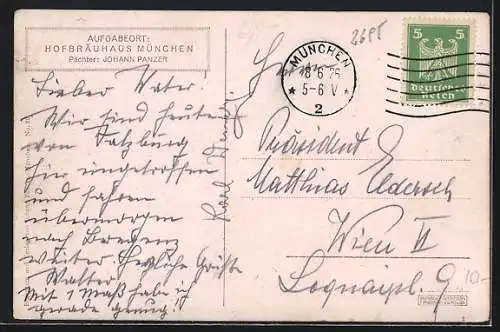 AUFGABEORT:
HOFBRÄUHAUS MÜNCHEN
Pächter: JOHANN PANZER
Lieber Vater.
Wir sind heute
von Salzburg
hier eingetroffen
und fahren
übermorgen
nach Bregenz
weiter. Herzliche Grüße
Walter
Mit 1 Maß habe ich
gerade genug!
Karl
MÜNCHEN
18 6 26
5-6 V
2
5 5
Deutsches
Reich
Herrn
Präsident
Matthias Eldersch
Wien VI
9
10-